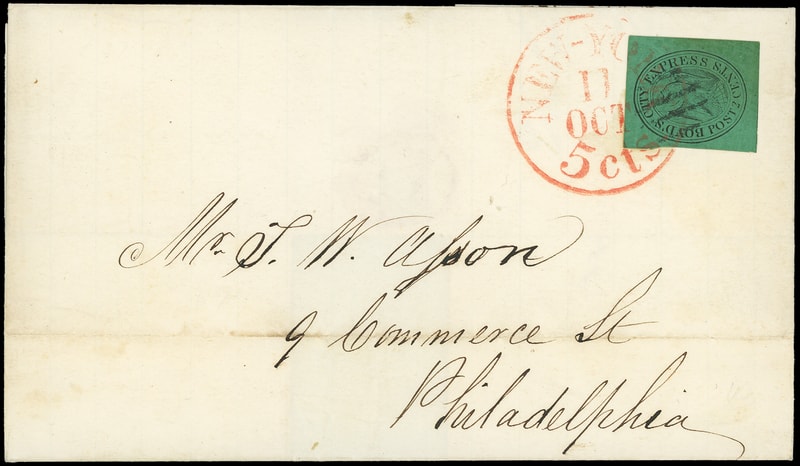 NEW-YO
11
OCT
5 cts
BOYD'S. CITY EXPRESS
2 CENTS
POST
Mr. T. W.
9 Commerce St
Philadelphia